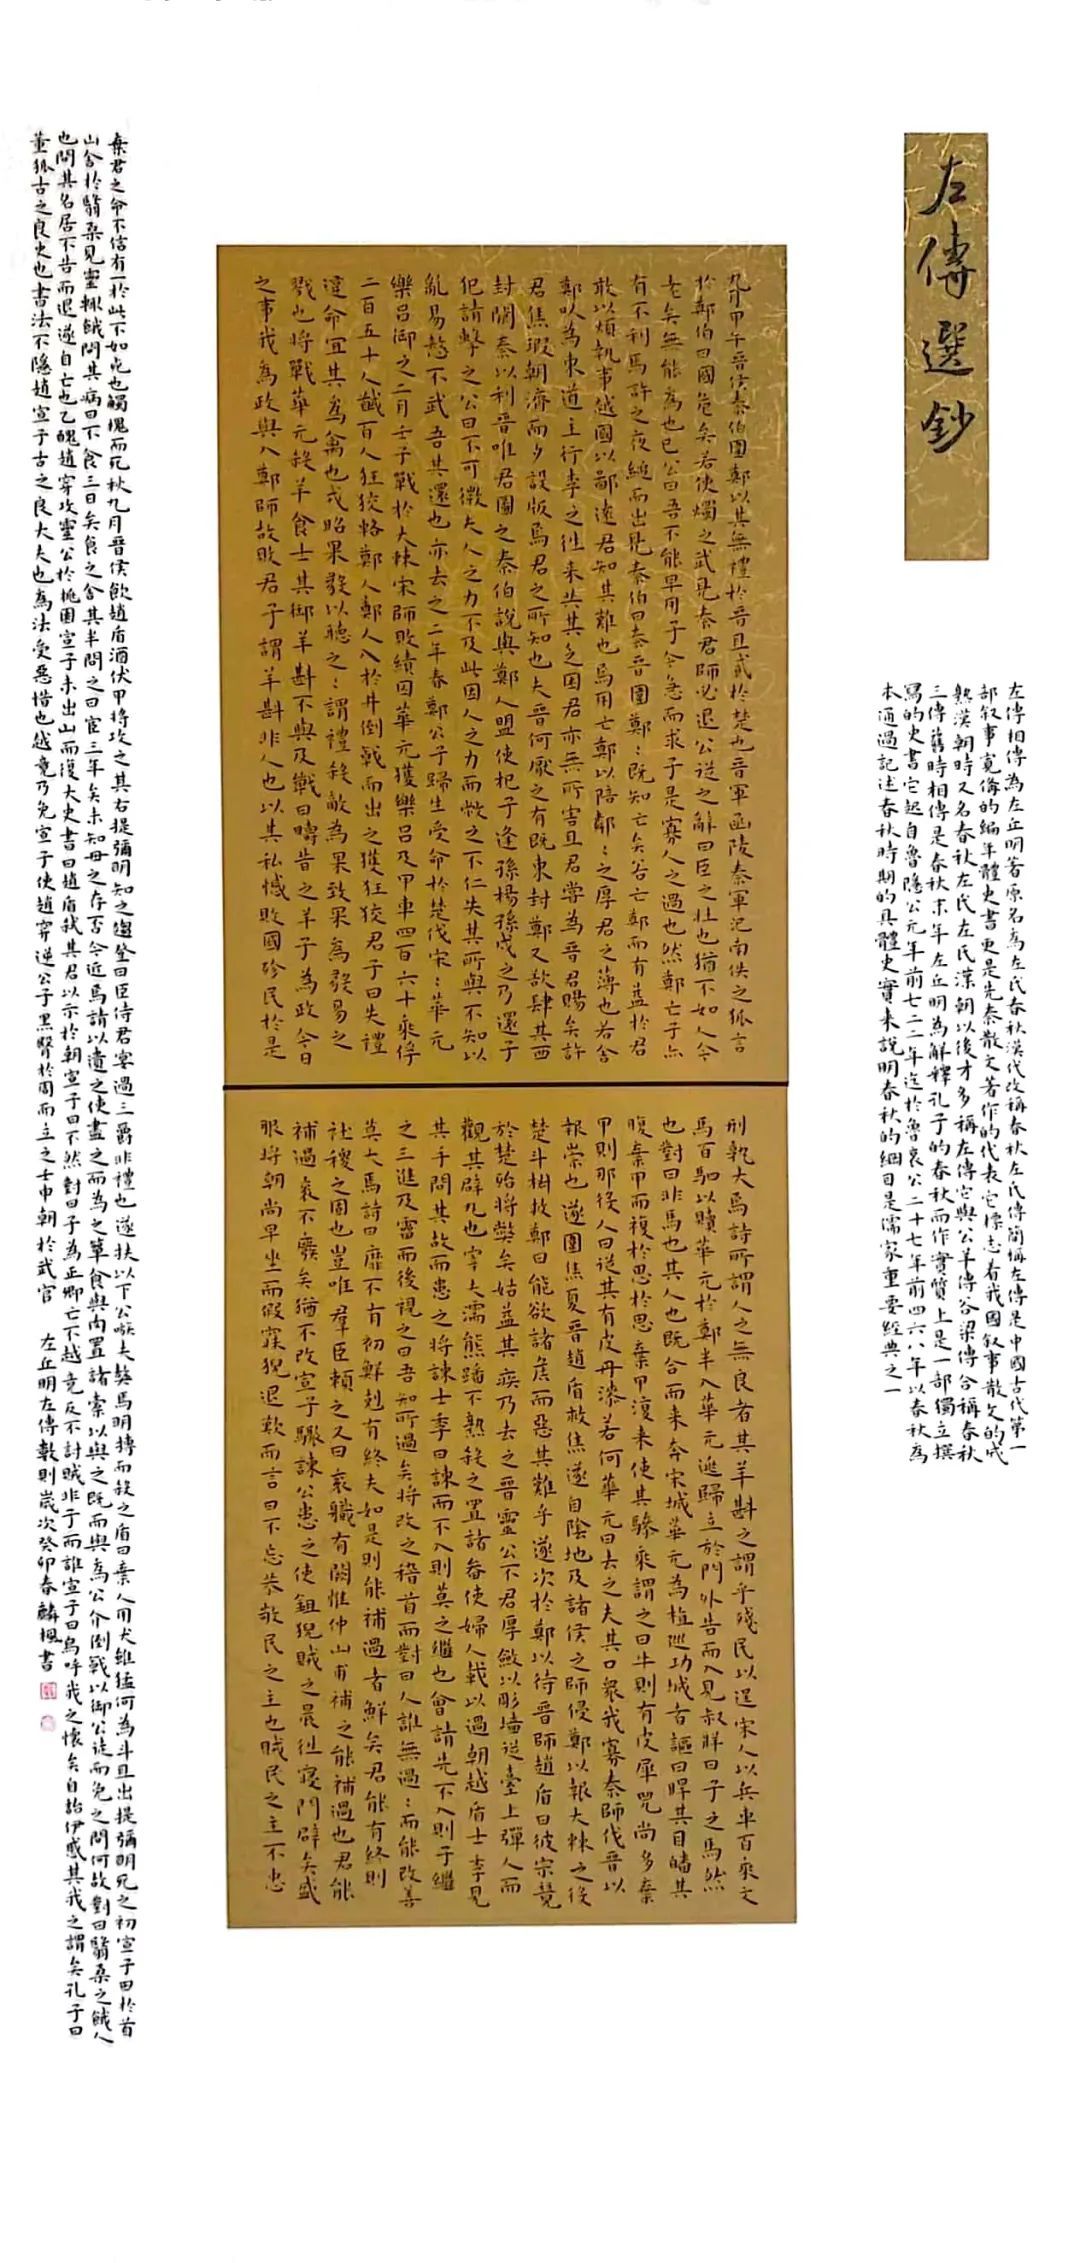 左傳選鈔
左傳相傳為左丘明著原名為左氏春秋漢代改稱春秋左氏傳簡稱左傳是中國古代第一
部叙事完備的編年體史書更是先秦散文著作的代表它標志着我國叙事散文的成
熟漢朝時又名春秋左氏左氏漢朝以後才多稱左傳它與公羊傳谷梁傳合稱春秋
三傳舊時相傳是春秋末年左丘明為解釋孔子的春秋而作實質上是一部獨立撰
寫的史書它起自魯隱公元年前七二二年迄於魯哀公二十七年前四六八年以春秋為
本通過記述春秋時期的具體史實来說明春秋的綱目是儒家重要經典之一
九月甲午晉侯秦伯圍鄭以其無禮於晉且貳於楚也晉軍函陵秦軍氾南佚之狐言
於鄭伯曰國危矣若使燭之武見秦君師必退公從之辭曰臣之壯也猶不如人今
老矣無能為也已公曰吾不能早用子今急而求子是寡人之過也然鄭亡子亦
有不利焉許之夜縋而出見秦伯曰秦晉圍鄭：既知亡矣若亡鄭而有益於君
敢以煩執事越國以鄙遠君知其難也焉用亡鄭以陪鄰：之厚君之薄也若舍
鄭以為東道主行李之往来共其乏困君亦無所害且君嘗為晉君賜矣許
君焦瑕朝濟而夕設版焉君之所知也夫晉何厭之有既東封鄭又欲肆其西
封闕秦以利晉唯君圖之秦伯說與鄭人盟使杞子逢孫楊孫戍之乃還子
犯請擊之公曰不可微夫人之力不及此因人之力而敝之不仁失其所與不知以
亂易整不武吾其還也亦去之二年春鄭公子歸生受命於楚伐宋：華元
樂呂御之二月壬子戰於大棘宋師敗績囚華元獲樂呂及甲車四百六十乘俘
二百五十人馘百人狂狡輅鄭人鄭人入於井倒戟而出之獲狂狡君子曰失禮
違命宜其為禽也戎昭果毅以聽之：謂禮殺敵為果致果為毅易之
戮也將戰華元殺羊食士其御羊斟不與及戰曰疇昔之羊子為政今日
之事我為政與入鄭師故敗君子謂羊斟非人也以其私憾敗國殄民於是
刑孰大焉詩所謂人之無良者其羊斟之謂乎殘民以逞宋人以兵車百乘文
馬百駟以贖華元於鄭半入華元逃歸立於門外告而入見叔牂曰子之馬然
也對曰非馬也其人也既合而来奔宋城華元為植巡功城者謳曰睅其目皤其
腹棄甲而複於思於思棄甲復来使其驂乘謂之曰牛則有皮犀兕尚多棄
甲則那役人曰從其有皮丹漆若何華元曰去之夫其口衆我寡秦師伐晉以
報崇也遂圍焦夏晉趙盾救焦遂自陰地及諸侯之師侵鄭以報大棘之役
楚斗椒救鄭曰能欲諸侯而惡其難乎遂次於鄭以待晉師趙盾曰彼宗競
於楚殆將斃矣姑益其疾乃去之晉靈公不君厚斂以彫墻從臺上彈人而
觀其辟丸也宰夫濡熊蹯不熟殺之置諸畚使婦人載以過朝趙盾士季見
其手問其故而患之將諫士季曰諫而不入則莫之繼也會請先不入則子繼
之三進及霤而後視之曰吾知所過矣將改之稽首而對曰人誰無過：而能改善
莫大焉詩曰靡不有初鮮剋有終夫如是則能補過者鮮矣君能有終則
社稷之固也豈唯群臣賴之又曰袞職有闕惟仲山甫補之能補過也君能
補過袞不廢矣猶不改宣子驟諫公患之使鉏猊賊之晨往寝門辟矣盛
服將朝尚早坐而假寐猊退歎而言曰不忘恭敬民之主也賊民之主不忠
棄君之命不信有一於此不如死也觸槐而死秋九月晉侯飲趙盾酒伏甲將攻之其右提彌明知之趨登曰臣侍君宴過三爵非禮也遂扶以下公嗾夫獒焉明搏而殺之盾曰棄人用犬雖猛何為斗且出提彌明死之初宣子田於首
山舍於翳桑見靈輒餓問其病曰不食三日矣食之舍其半問之曰宦三年矣未知母之存否今近焉請以遺之使盡之而為之簞食與肉置諸橐以與之既而與為公介倒戟以御公徒而免之問何故對曰翳桑之餓人
也問其名居不告而退遂自亡也乙醜趙穿攻靈公於桃園宣子未出山而復大史書曰趙盾弒其君以示於朝宣子曰不然對曰子為正卿亡不越竟反不討賊非子而誰宣子曰烏呼我之懷矣自詒伊慼其我之謂矣孔子曰
董狐古之良史也書法不隱趙宣子古之良大夫也為法受惡惜也越竟乃免宣子使趙穿逆公子黑臀於周而立之壬申朝於武宮　左丘明左傳數則歲次癸卯春麟楓書